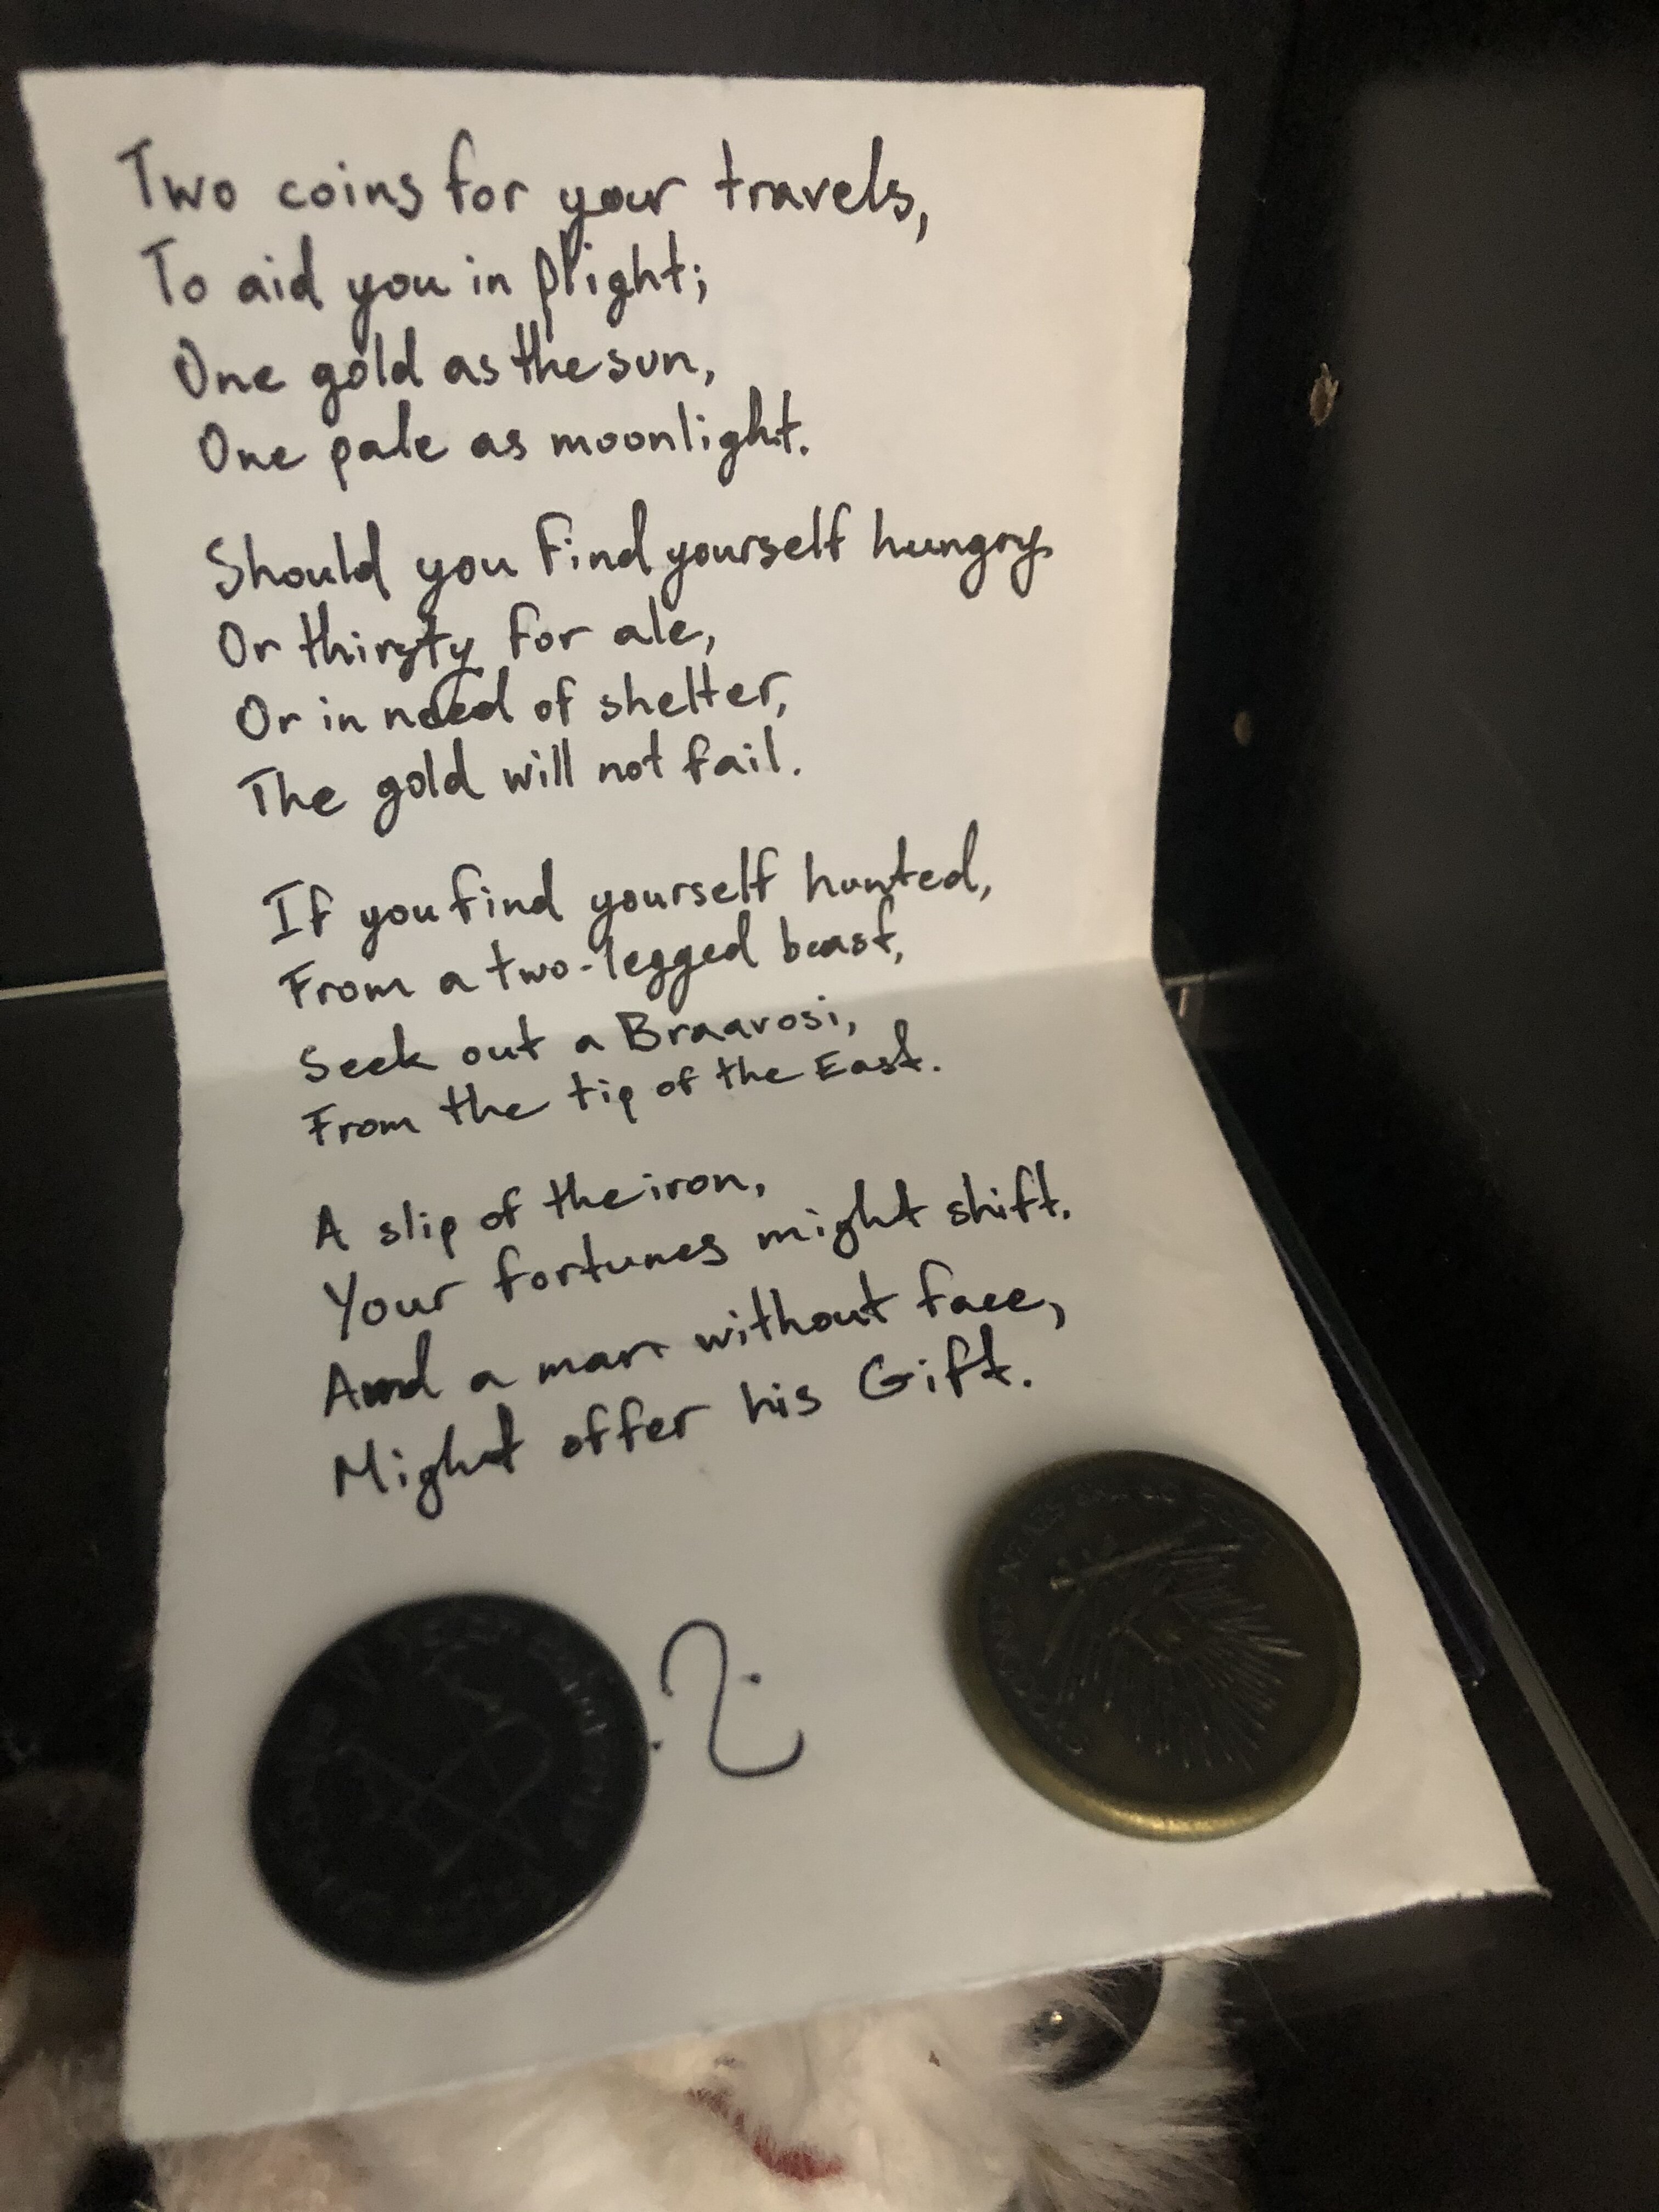 Two coins for your travels,
To aid you in plight;
One gold as the sun,
One pale as moonlight.
Should you find yourself hungry
Or thirsty for ale,
Or in need of shelter,
The gold will not fail.
If you find yourself hunted,
From a two-legged beast,
Seek out a Braavosi,
From the tip of the East.
A slip of the iron,
Your fortunes might shift.
And a man without face,
Might offer his Gift.